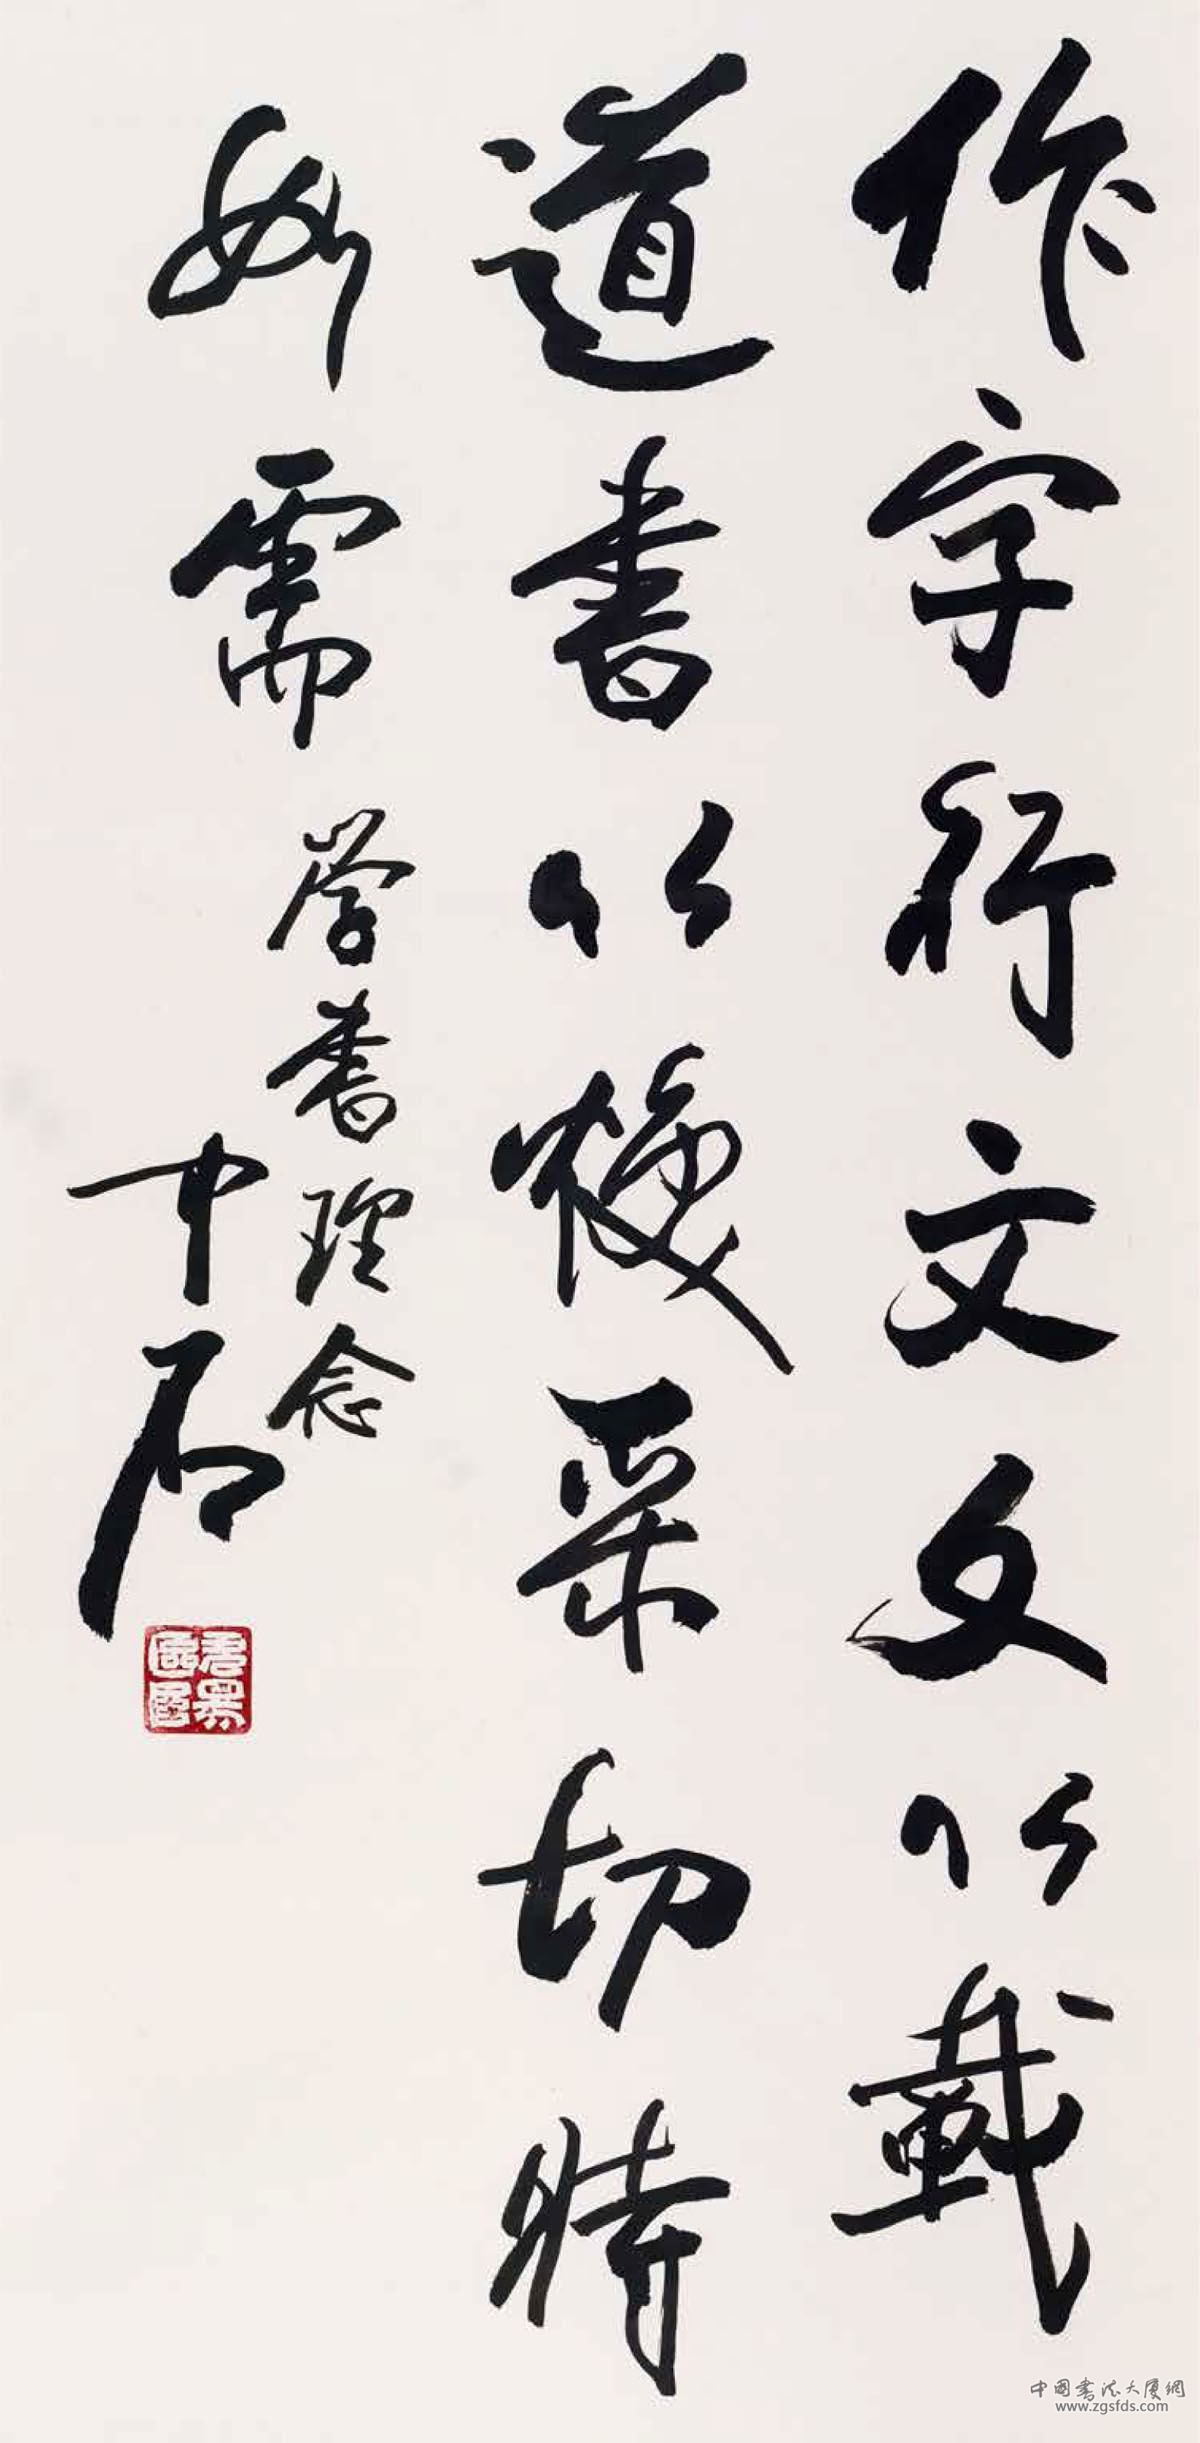 作字行文文以載
道書以煥采切時
如需
學書理念
中石
中国书法大厦網
www.zgsfds.com